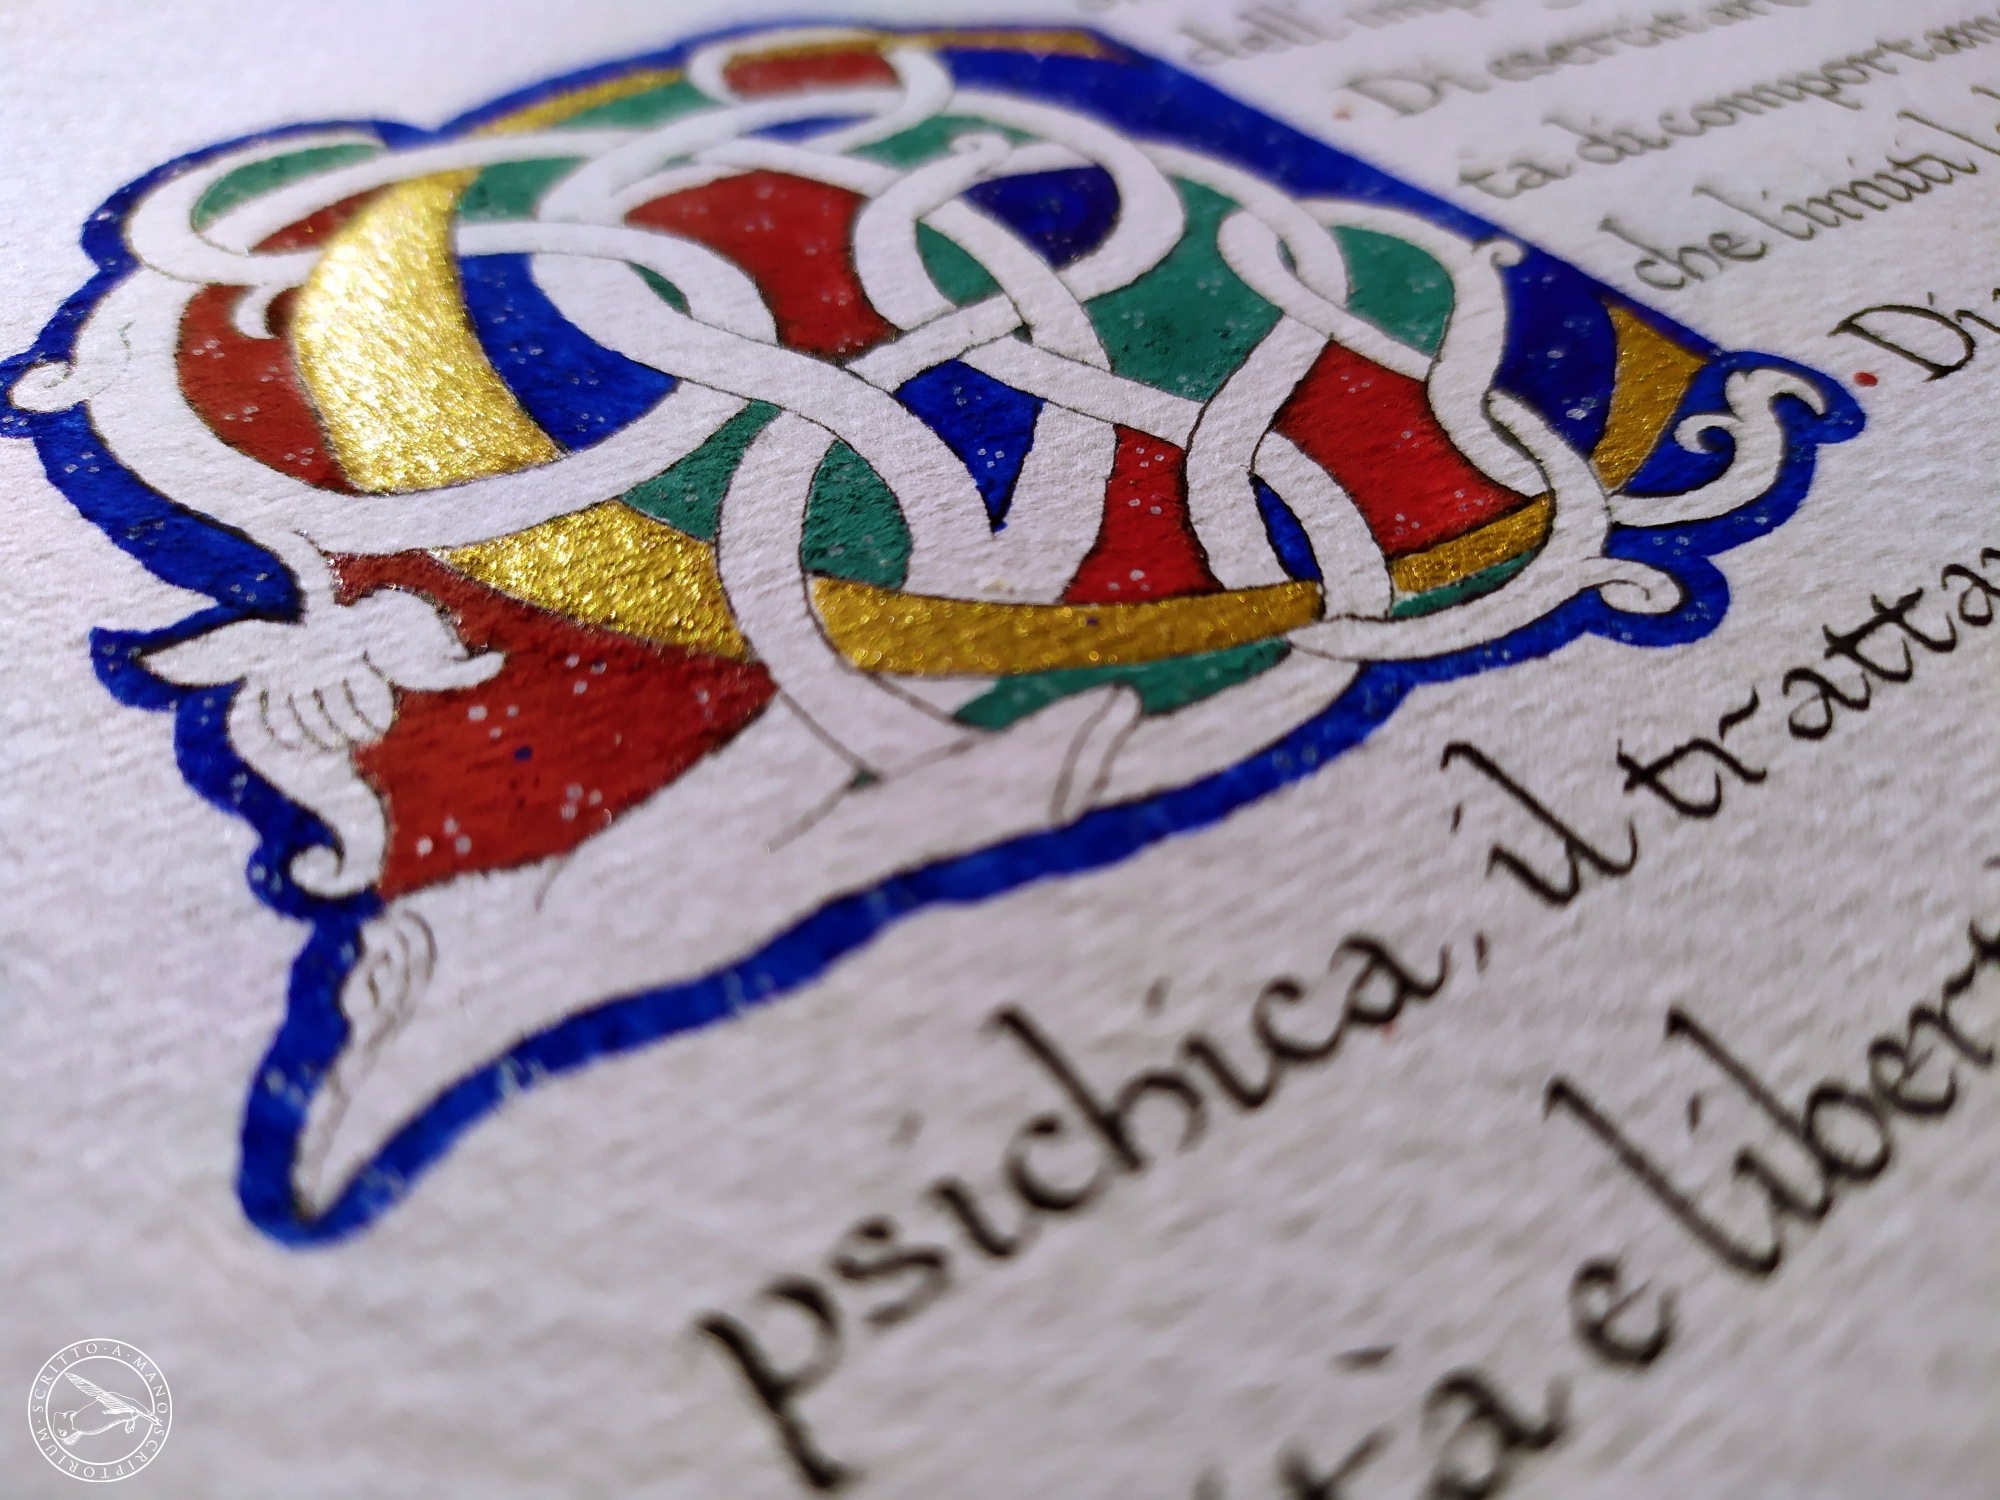 Di esercitare
ta di comportam
che limiti l
Di
psichica, il tratta
tà e libert
SCRITTO·A·MANO·SCRIPTORIUM·